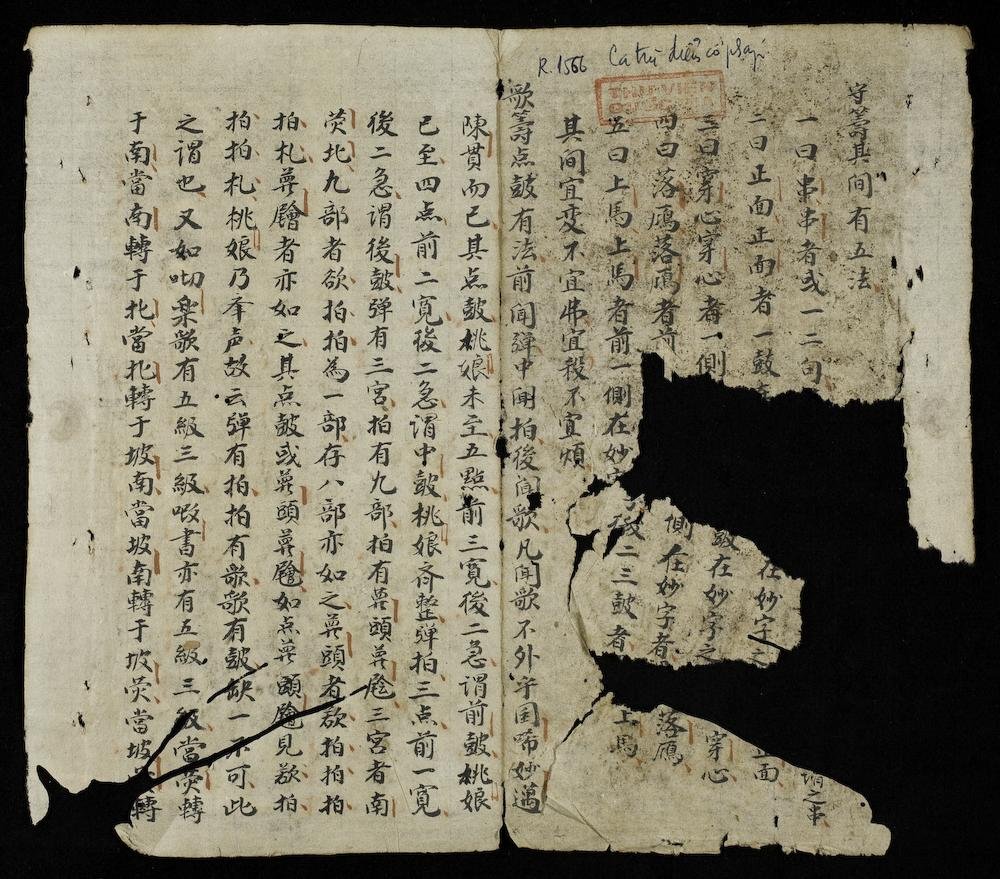 R.1566 Ca trù điểu cổ pháp
THƯ VIỆN
QUỐC GIA
守籌其間有五法
一曰串串者或一二句
二曰正面正面者一鼓 在妙字之 正面
三曰穿心穿心者一側 鼓在妙字之 穿心
四曰落鴈落鴈者前 側在妙字者 落鴈
五曰上馬上馬者前一側在妙字 二三鼓者 上馬
其間宜变不宜常宜殺不宜煩
歌籌点鼓有法前闻弹中闻拍後闻歌凡闻歌不外乎国㗂妙邁
陳貫而已其点鼓桃娘未空五點前三寛後二急谓前鼓桃娘
已至四点前二寛後二急谓中鼓桃娘斉整弹拍三点前一寛
後二急谓後鼓弹有三宫拍有九部拍有𦲵頭𦲵𦠆三宫者南
荧北九部者欲拍拍為一部存八部亦如之𦲵頭者欲拍拍拍
拍札𦲵𦠆者亦如之其点鼓或𦲵頭𦲵𦠆如点𦲵頭𦠆見欲拍
拍拍札桃娘乃㚏声故云弹有拍拍有歌歌有鼓缺一不可此
之谓也又如𠰃樂歌有五級三級㗇書亦有五級三級當荧轉
于南當南轉于北當北轉于坡南當坡南轉于坡荧當坡 轉